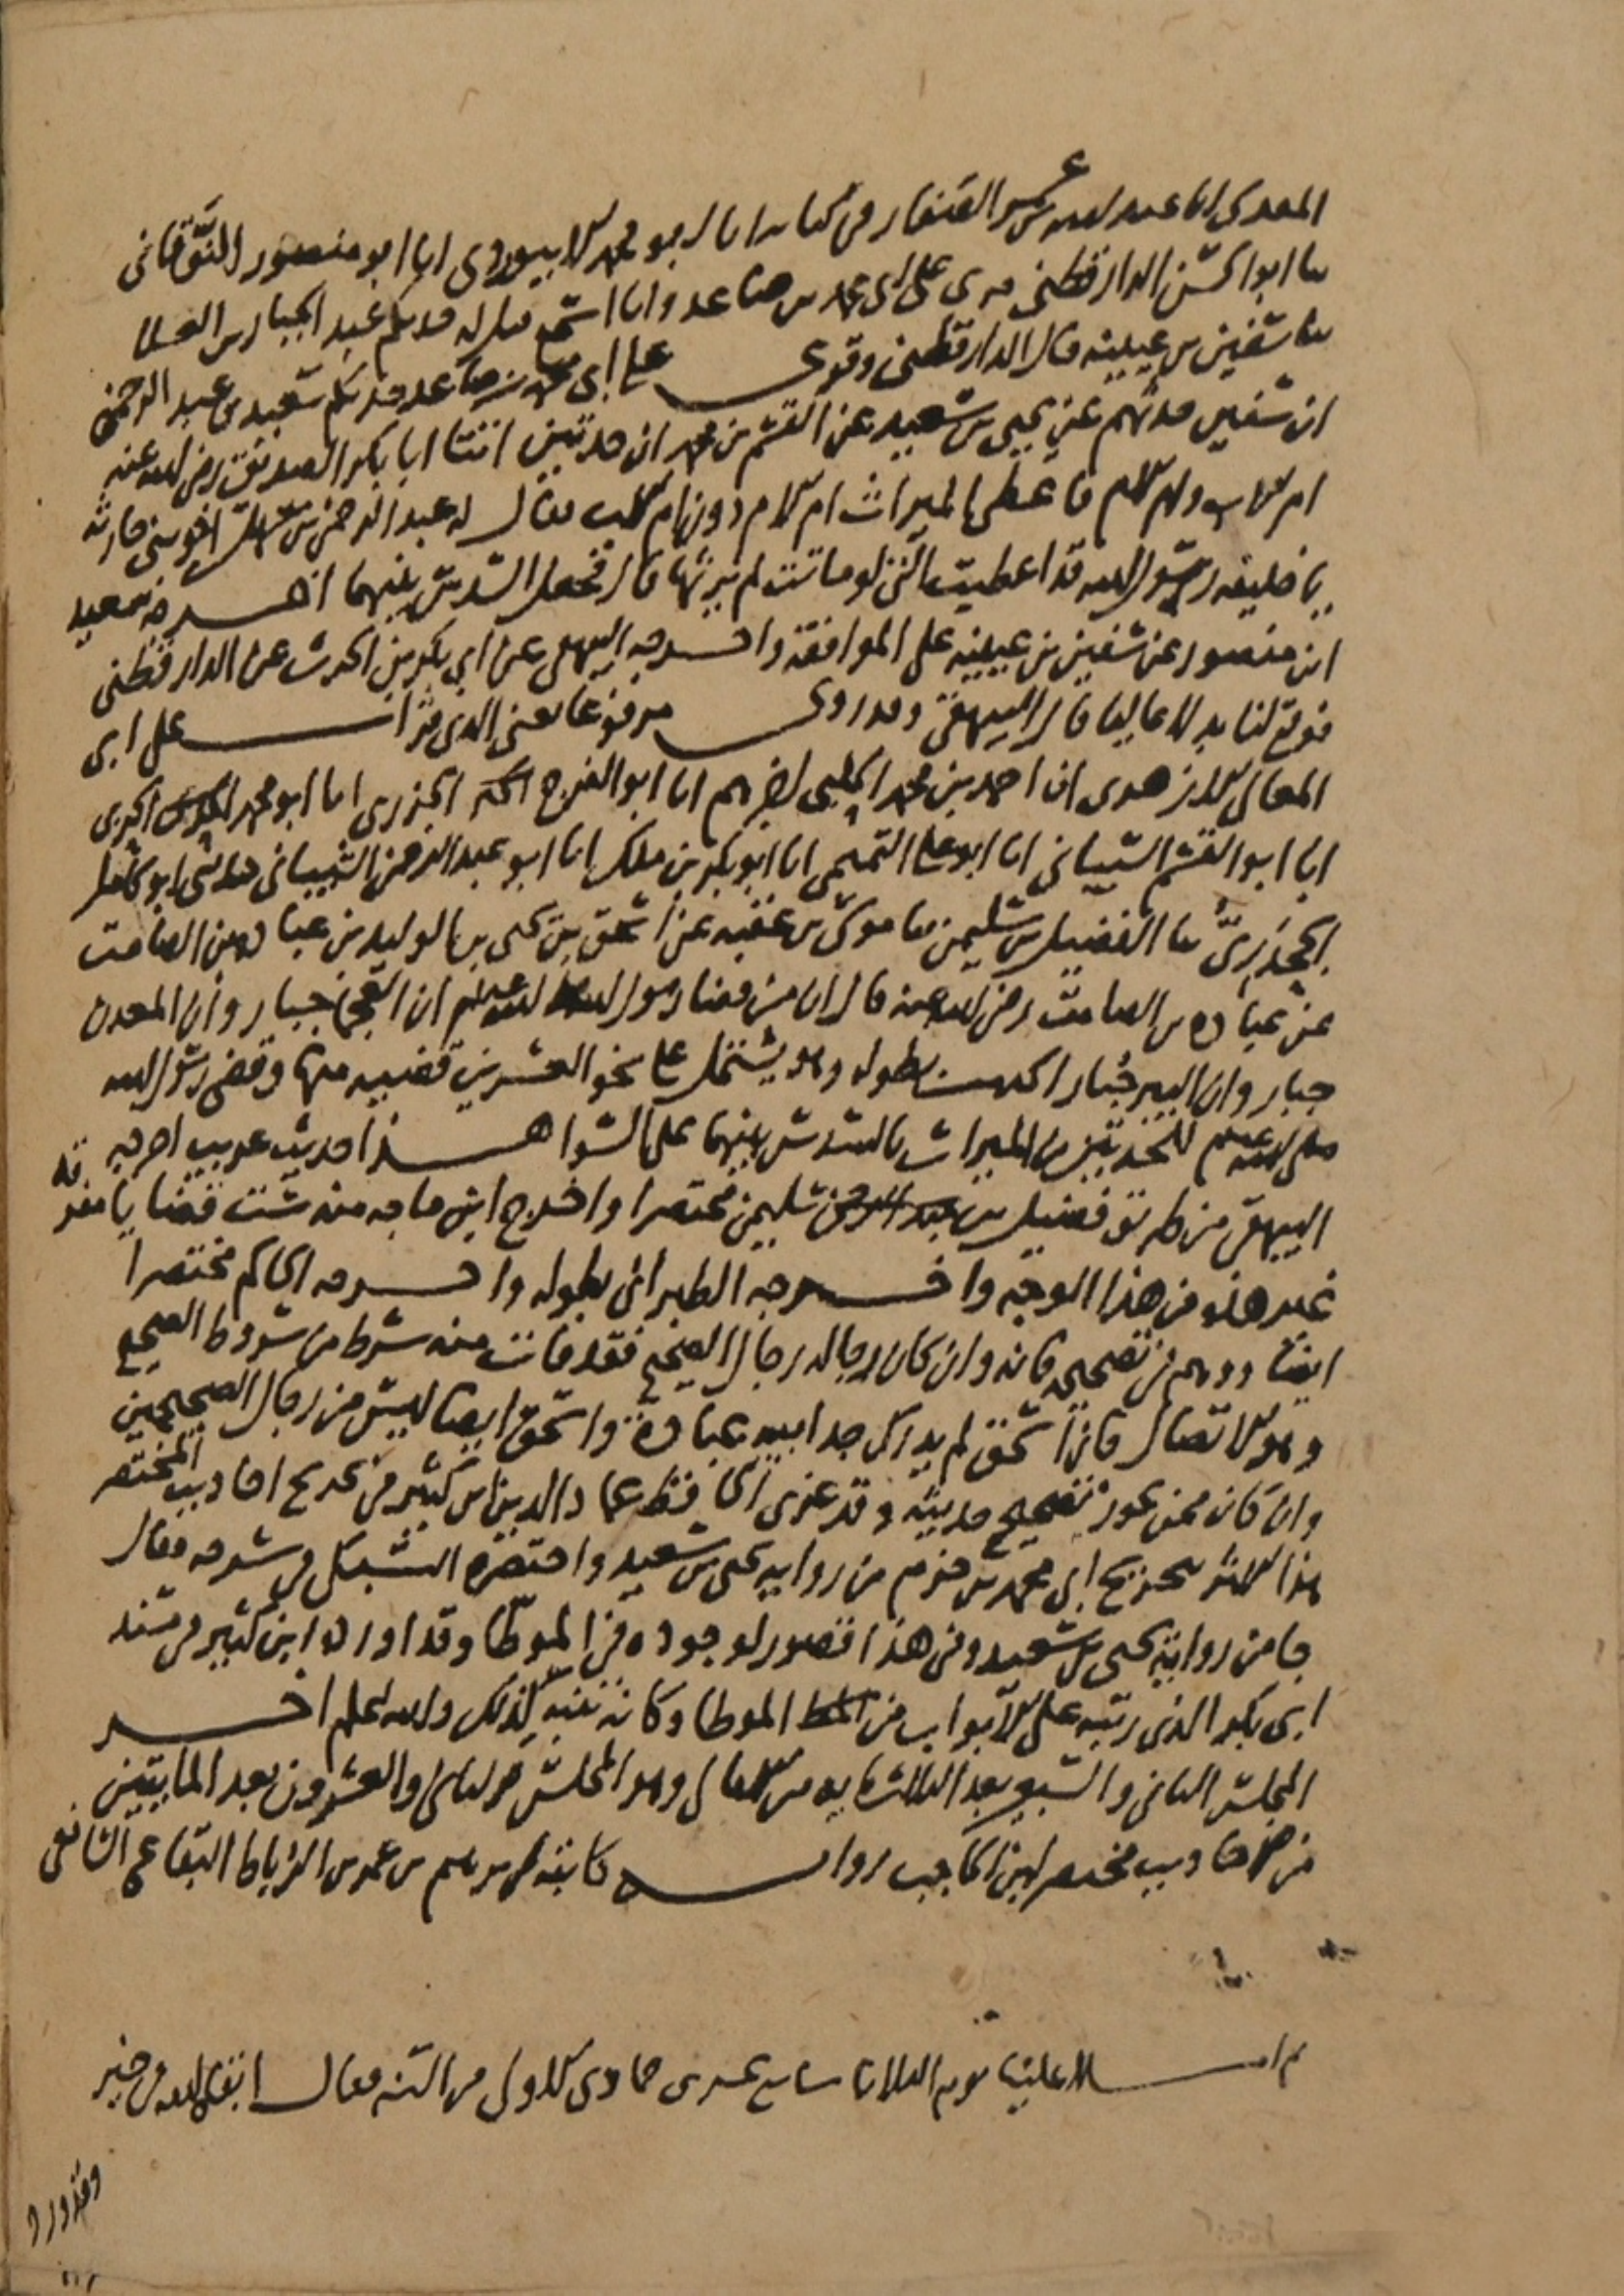 المقدسي انا عبد الله بن عمر الصفار في كتابه انا ابو محمد الابيوردي انا ابو منصور النوقاني
ثنا ابو الحسن الدارقطني قرئ على ابي محمد بن صاعد وانا اسمع قيل له حدثكم عبد الجبار بن العلا
ثنا سفين بن عيينه قال الدارقطني وقرئ على ابي محمد بن صاعد حدثكم سعيد بن عبد الرحمن
ان سفين حدثهم عن يحيى بن سعيد عن القسم بن محمد ان جدتين اتتا ابا بكر الصديق رضي الله عنه
ام الاب وام الام فاعطى الميراث ام الام دون ام الاب فقال له عبد الرحمن بن سهل اخو بني حارثه
يا خليفه رسول الله قد اعطيت التي لو ماتت لم يرثها قال فجعل السدس بينهما اخرجه سعيد
ابن منصور عن سفين بن عيينه على الموافقة واخرجه البيهقي عن ابي بكر بن الحرث عن الدارقطني
فوقع لنا بدلا عاليا قال البيهقي وقد روي مرفوعا يعني الذي قرات على ابي
المعالي الازهري ان احمد بن محمد الحلبي اخبرهم انا ابو الفرج الجزري انا ابو محمد الحربي
انا ابو القسم الشيباني انا ابو علي التميمي انا ابو بكر بن ملك انا ابو عبد الرحمن الشيباني حدثني ابو كامل
الجحدري ثنا الفضيل بن سليمن ثنا موسى بن عقبه عن اسحق بن يحيى بن الوليد بن عباده بن الصامت
عن عباده بن الصامت رضي الله عنه قال ان من قضا رسول الله صلى الله عليه وسلم ان العجما جبار وان المعدن
جبار وان البير جبار الحديث بطوله وهو يشتمل على نحو العشرين قضيه منها وقضى رسول الله
صلى الله عليه وسلم للجدتين من الميراث بالسدس بينهما على السوا هذا حديث غريب اخرجه
البيهقي من طريق فضيل بن سليمن مختصرا واخرج ابن ماجه منه ست قضايا مفرقه
غير هذه من هذا الوجه واخرجه الطبراني بطوله واخرجه الحاكم مختصرا
ايضا ووهم في تصحيحه فانه وان كان رجاله رجال الصحيح فقد فات منه شرط من شروط الصحيح
وهو الاتصال فان اسحق لم يدرك جد ابيه عبادة واسحق ايضا ليس من رجال الصحيحين
وان كان ممن يجوز تصحيح حديثه وقد عزى الحافظ عماد الدين ابن كثير في تخريج احاديث المختصر
هذا الاثر لتخريج ابي محمد بن حزم من رواية يحيى بن سعيد واختصره السبكي في شرحه فقال
جا من رواية يحيى بن سعيد وفي هذا قصور لوجوده في الموطا وقد اورده ابن كثير في مسند
ابي بكر الذي رتبه على الابواب من الموطا وكانه تنبه لذلك والله اعلم اخر
المجلس الثاني والسبعين بعد الثلثمايه من الامالي وهو المجلس الثاني والعشرون بعد المايتين
من احاديث مختصر ابن الحاجب رواية كاتبه ابرهيم بن عمر بن الرباط البقاعي الشافعي
ثم املا علينا يوم الثلاثا سابع عشري جمادى الاولى من السنه فقال ابقاه الله في خير
وقد ورد